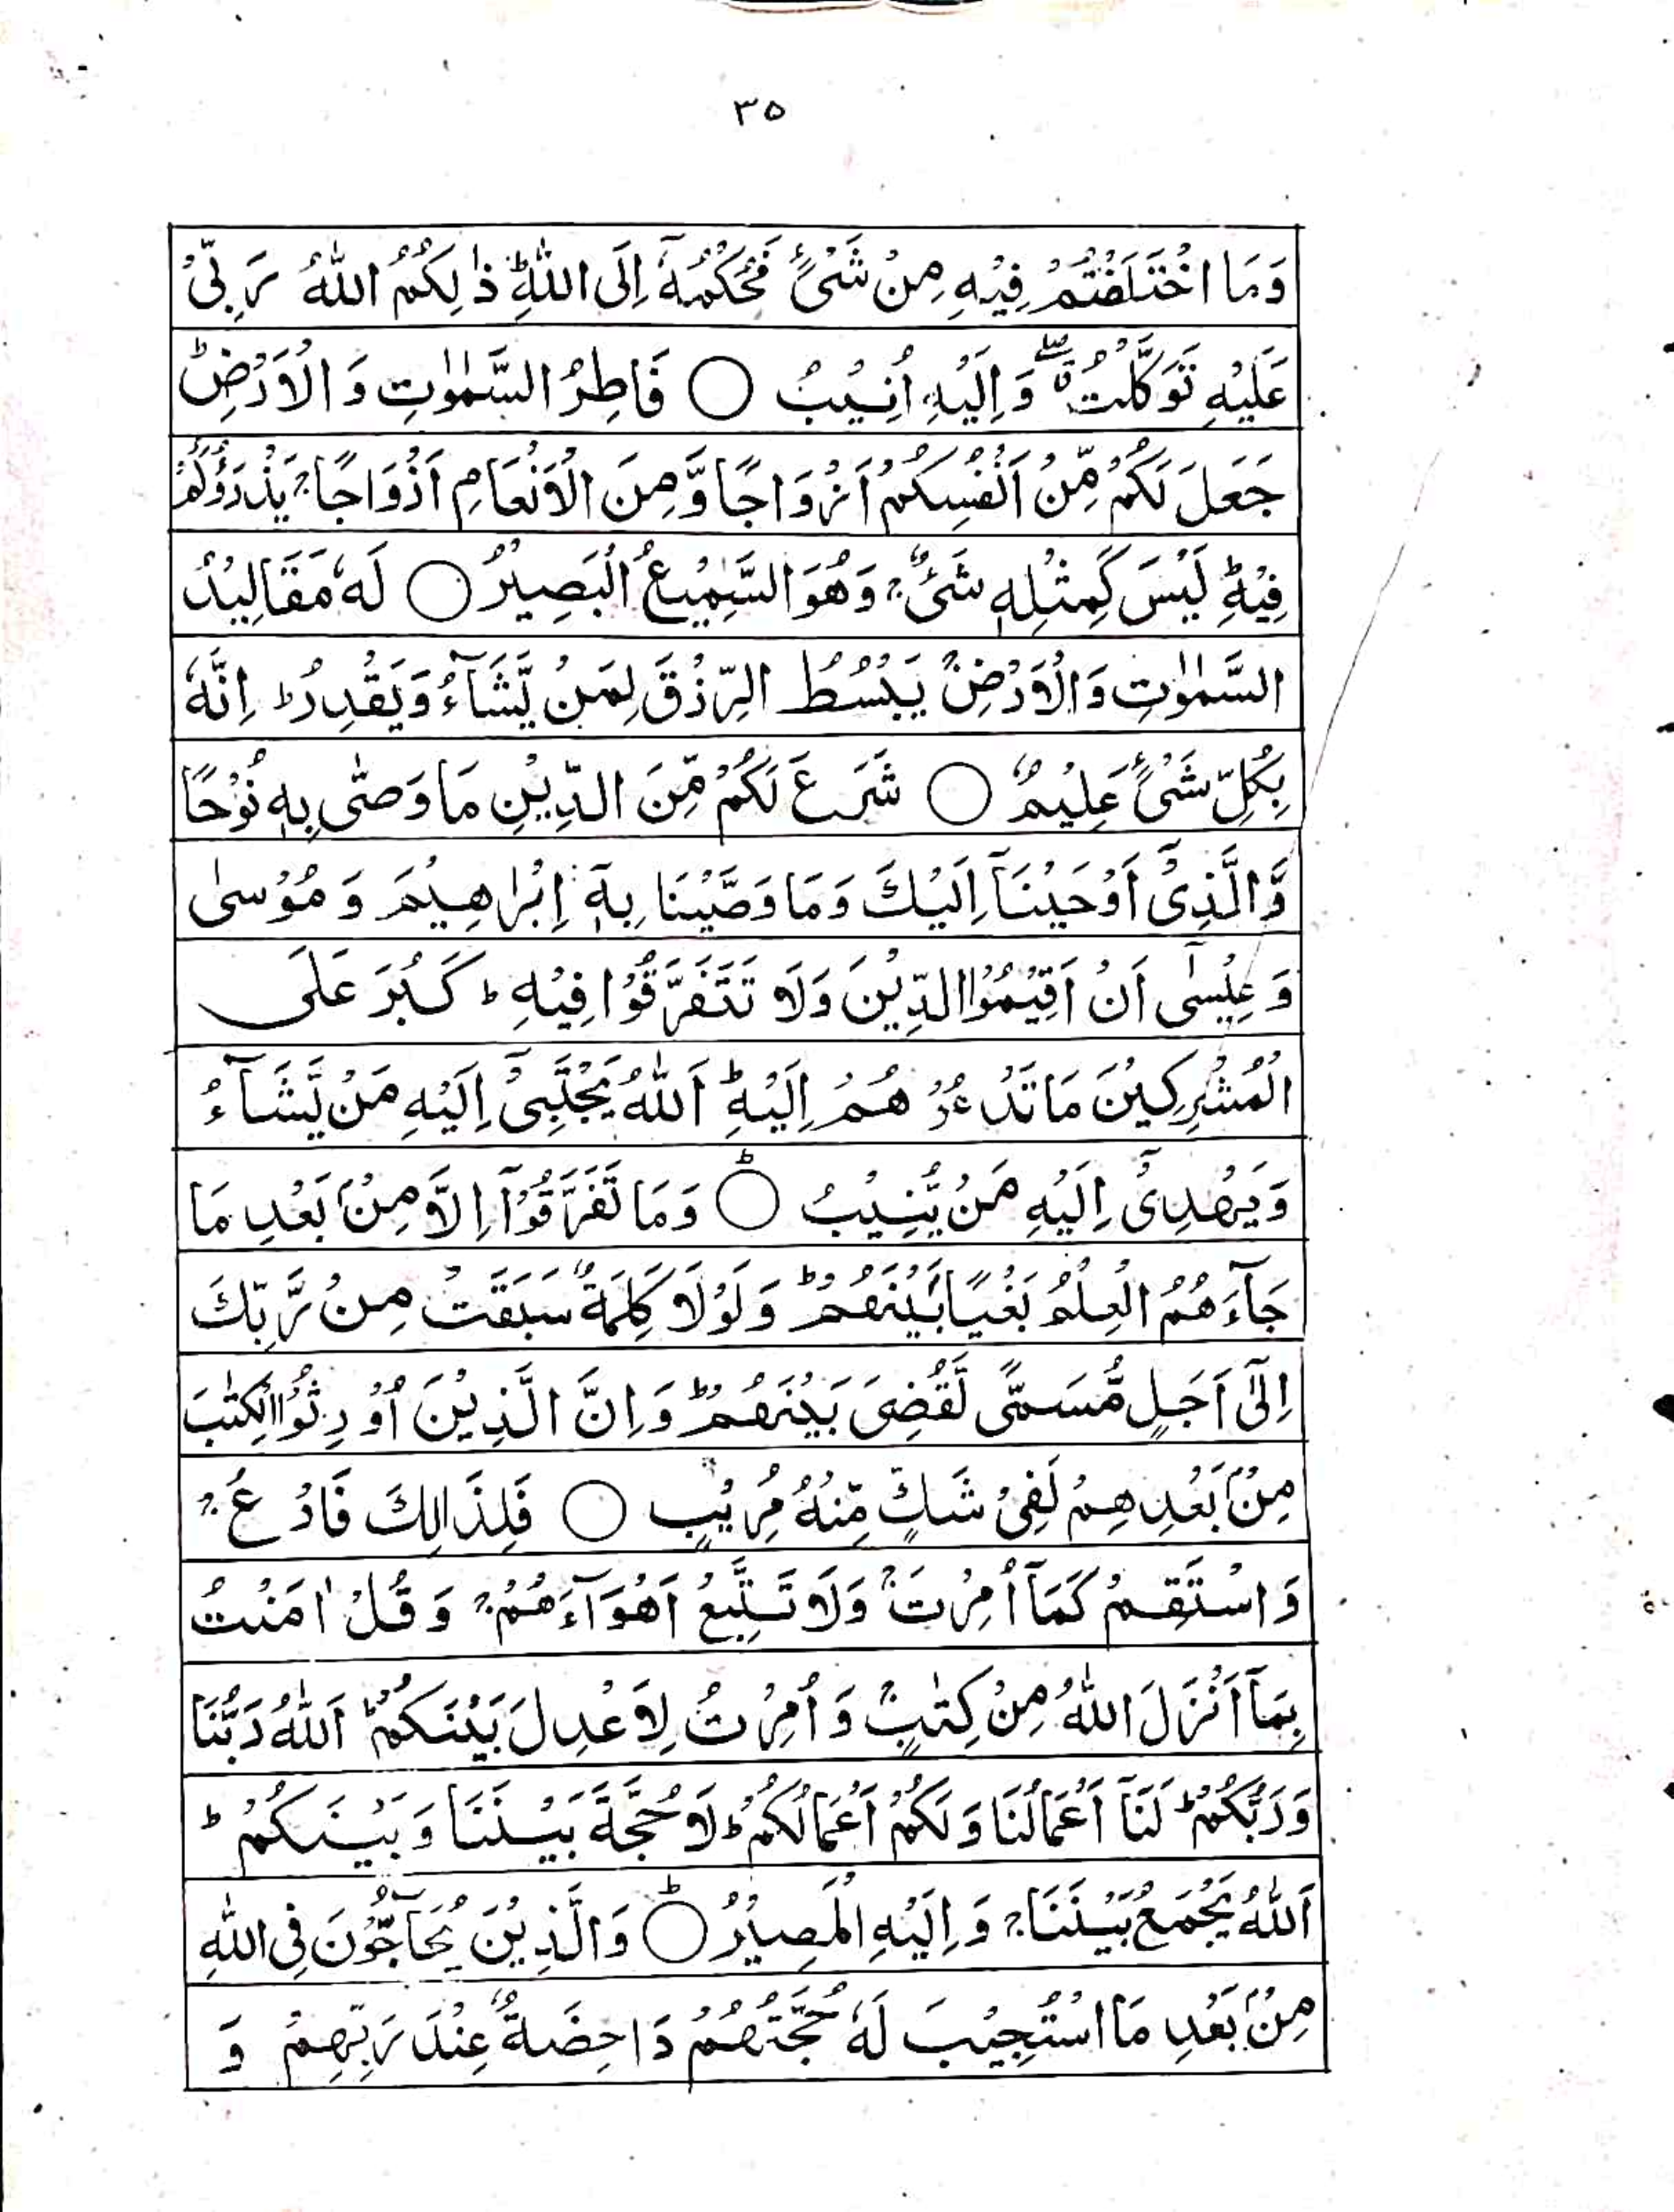 ۳۵
وَمَا اخْتَلَفْتُمْ فِيْهِ مِنْ شَیْءٍ فَحُكْمُهٗۤ اِلَی اللّٰهِ ؕ ذٰلِكُمُ اللّٰهُ رَبِّیْ
عَلَيْهِ تَوَكَّلْتُ ۖۗ وَاِلَيْهِ اُنِيْبُ ○ فَاطِرُ السَّمٰوٰتِ وَالْاَرْضِ ؕ
جَعَلَ لَكُمْ مِّنْ اَنْفُسِكُمْ اَزْوَاجًا وَّمِنَ الْاَنْعَامِ اَزْوَاجًا ۚ يَذْرَؤُكُمْ
فِيْهِ ؕ لَيْسَ كَمِثْلِهٖ شَیْءٌ ۚ وَهُوَ السَّمِيْعُ الْبَصِيْرُ ○ لَهٗ مَقَالِيْدُ
السَّمٰوٰتِ وَالْاَرْضِ ۚ يَبْسُطُ الرِّزْقَ لِمَنْ يَّشَآءُ وَيَقْدِرُ ؕ اِنَّهٗ
بِكُلِّ شَیْءٍ عَلِيْمٌ ○ شَرَعَ لَكُمْ مِّنَ الدِّيْنِ مَا وَصّٰی بِهٖ نُوْحًا
وَّالَّذِیْۤ اَوْحَيْنَاۤ اِلَيْكَ وَمَا وَصَّيْنَا بِهٖۤ اِبْرٰهِيْمَ وَمُوْسٰی
وَعِيْسٰۤی اَنْ اَقِيْمُوا الدِّيْنَ وَلَا تَتَفَرَّقُوْا فِيْهِ ؕ كَبُرَ عَلَی
الْمُشْرِكِيْنَ مَا تَدْعُوْهُمْ اِلَيْهِ ؕ اَللّٰهُ يَجْتَبِیْۤ اِلَيْهِ مَنْ يَّشَآءُ
وَيَهْدِیْۤ اِلَيْهِ مَنْ يُّنِيْبُ ○ؕ وَمَا تَفَرَّقُوْۤا اِلَّا مِنْۢ بَعْدِ مَا
جَآءَهُمُ الْعِلْمُ بَغْيًۢا بَيْنَهُمْ ؕ وَلَوْلَا كَلِمَةٌ سَبَقَتْ مِنْ رَّبِّكَ
اِلٰۤی اَجَلٍ مُّسَمًّی لَّقُضِیَ بَيْنَهُمْ ؕ وَاِنَّ الَّذِيْنَ اُوْرِثُوا الْكِتٰبَ
مِنْۢ بَعْدِهِمْ لَفِیْ شَكٍّ مِّنْهُ مُرِيْبٍ ○ فَلِذَالِكَ فَادْعُ ۚ
وَاسْتَقِمْ كَمَاۤ اُمِرْتَ ۚ وَلَا تَتَّبِعْ اَهْوَآءَهُمْ ۚ وَقُلْ اٰمَنْتُ
بِمَاۤ اَنْزَلَ اللّٰهُ مِنْ كِتٰبٍ ۚ وَاُمِرْتُ لِاَعْدِلَ بَيْنَكُمْ ؕ اَللّٰهُ رَبُّنَا
وَرَبُّكُمْ ؕ لَنَاۤ اَعْمَالُنَا وَلَكُمْ اَعْمَالُكُمْ ؕ لَا حُجَّةَ بَيْنَنَا وَبَيْنَكُمْ ؕ
اَللّٰهُ يَجْمَعُ بَيْنَنَا ۚ وَاِلَيْهِ الْمَصِيْرُ ○ؕ وَالَّذِيْنَ يُحَآجُّوْنَ فِی اللّٰهِ
مِنْۢ بَعْدِ مَا اسْتُجِيْبَ لَهٗ حُجَّتُهُمْ دَاحِضَةٌ عِنْدَ رَبِّهِمْ وَ